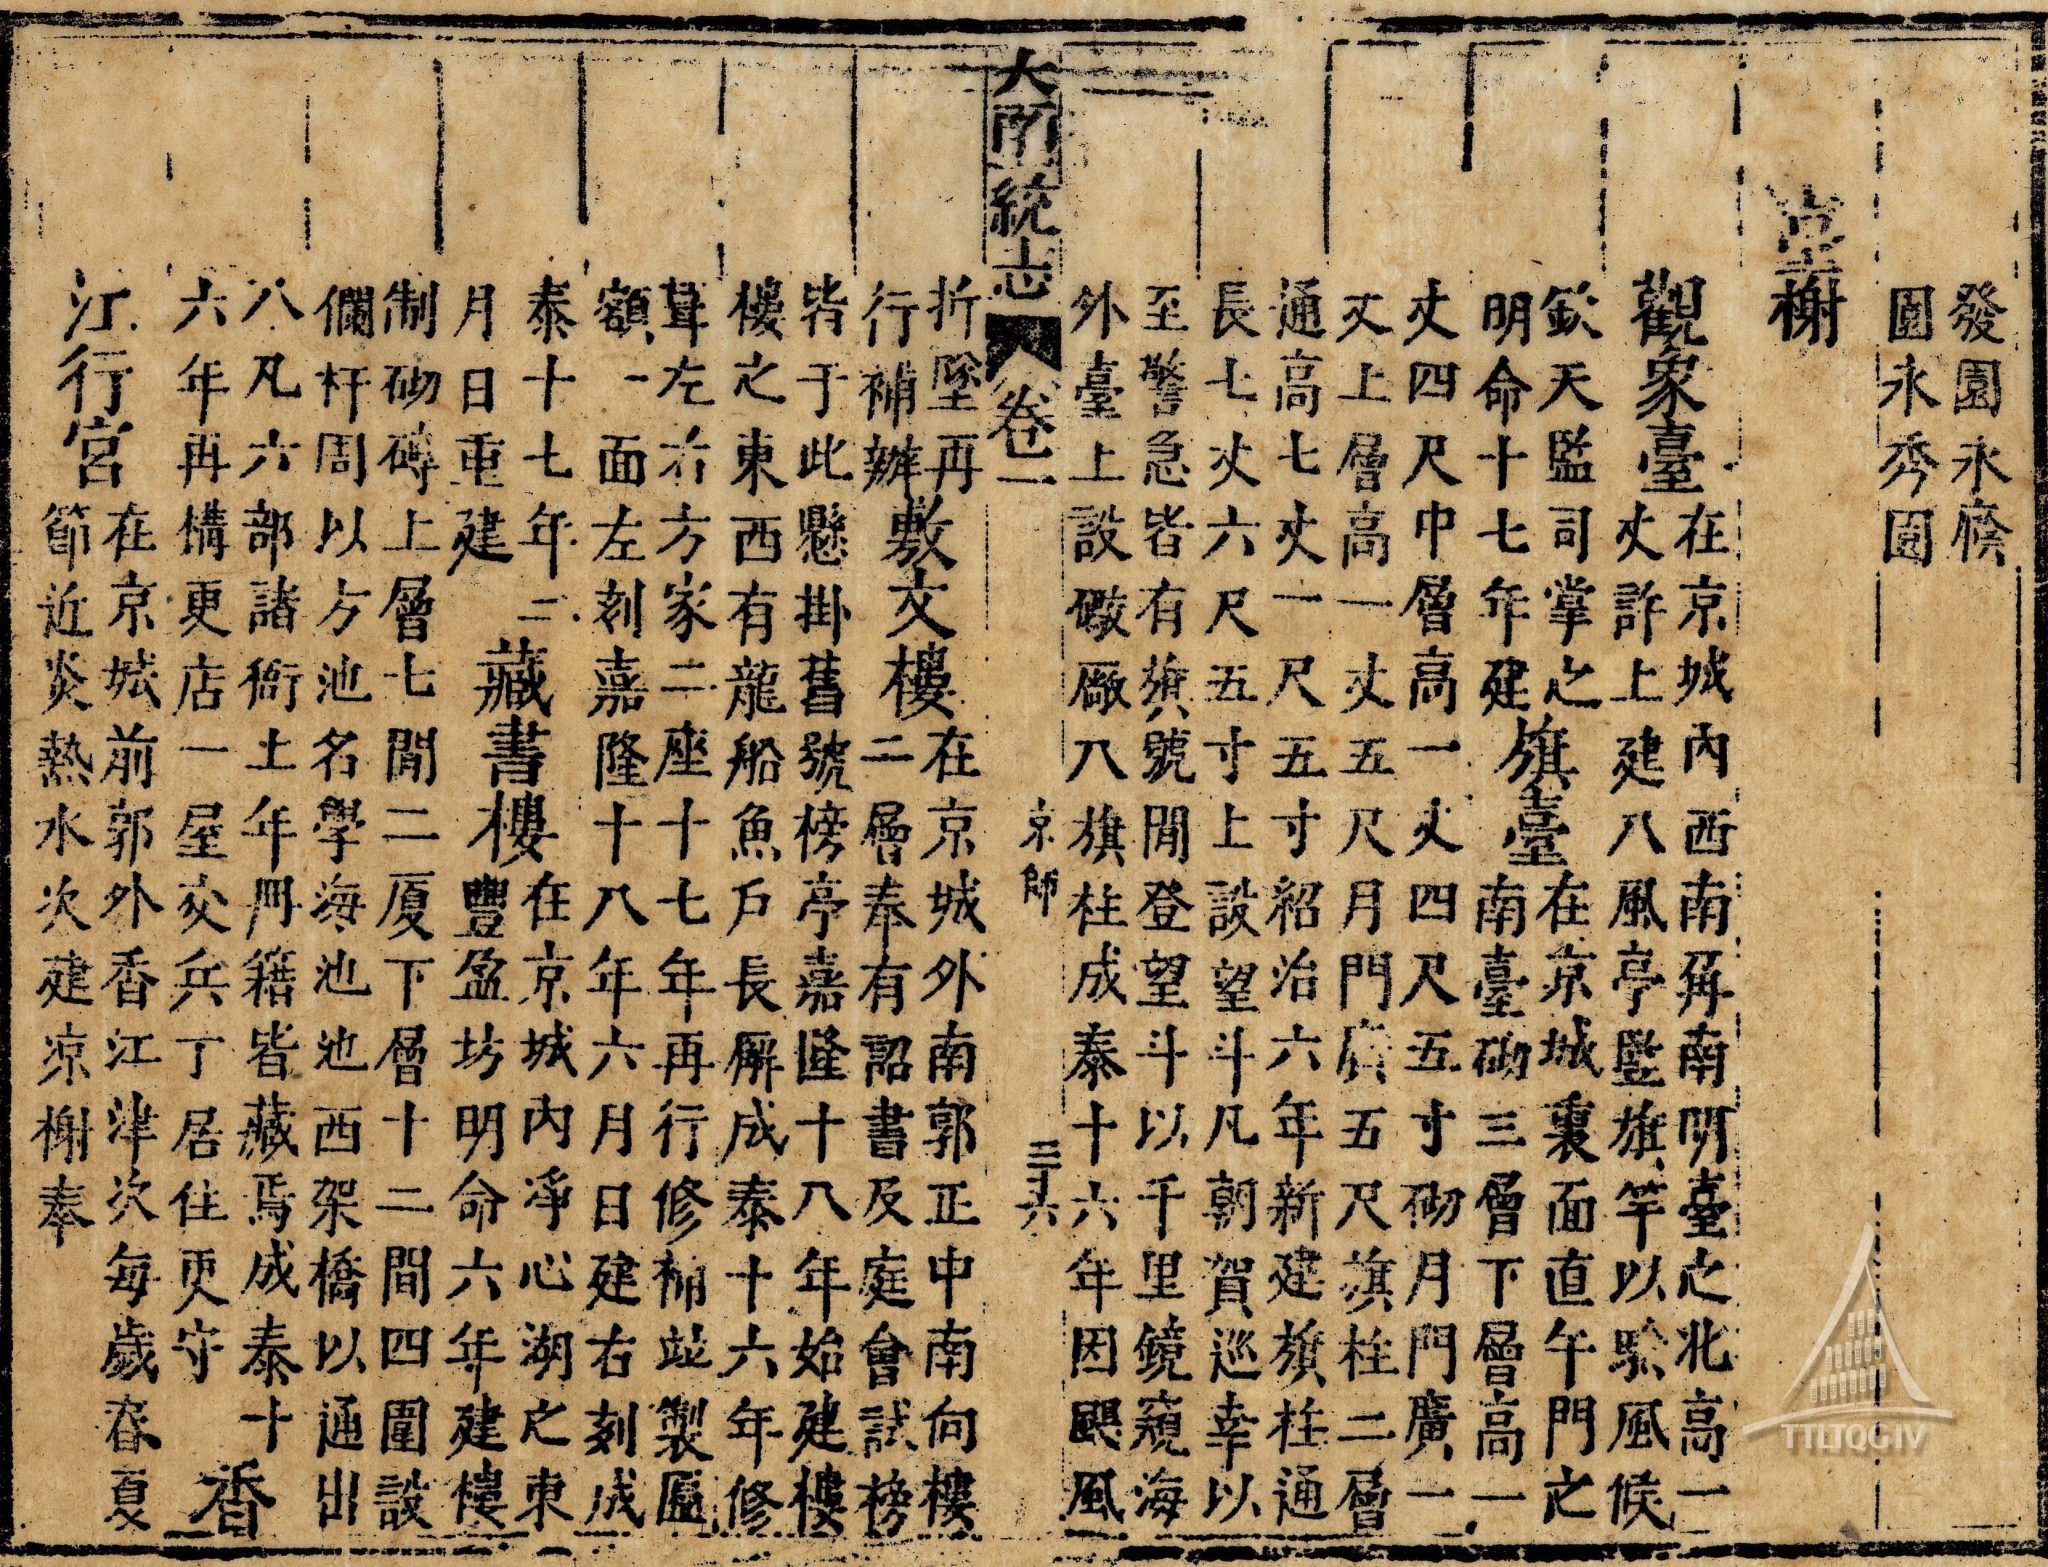 發園永候
園永秀園
堂榭
觀象臺在京城內西南角南明臺之北高一
丈許上建八風亭豎旗竿以驗風候
欽天監司掌之旗臺在京城裏面直午門之
明命十七年建南臺砌三層下層高一
丈四尺中層高一丈四尺五寸砌月門廣一
丈上層高一丈五尺月門廣五尺旗柱二層
通高七丈一尺五寸紹治六年新建旗柱通
長七丈六尺五寸上設望斗凡朝賀巡幸以
至警急皆有旗號間登望斗以千里鏡窺海
外臺上設礮廠八旗柱成泰十六年因颶風
大南一統志 卷一 京師 三十六
折墜再
行補辦敷文樓在京城外南郭正中南向樓
二層奉有詔書及庭會試榜
皆于此懸掛舊號榜亭嘉隆十八年始建樓
樓之東西有龍船魚戶長廨成泰十六年修
葺左右方家二座十七年再行修補並製匾
額一面左刻嘉隆十八年六月日建右刻成
泰十七年二
月日重建藏書樓在京城內淨心湖之東
豐盈坊明命六年建樓
制砌磚上層七間二廈下層十二間四圍設
欄杆周以方池名學海池池西架橋以通出
入凡六部諸衙上年冊籍皆藏焉成泰十
六年再構更店一屋交兵丁居住更守香
江行宮在京城前郭外香江津次每歲春夏
節近炎熱水次建凉榭奉
TTLTQGIV